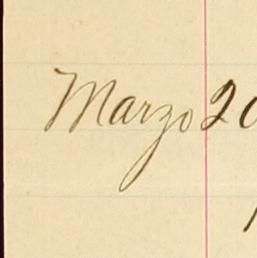 Marzo 20